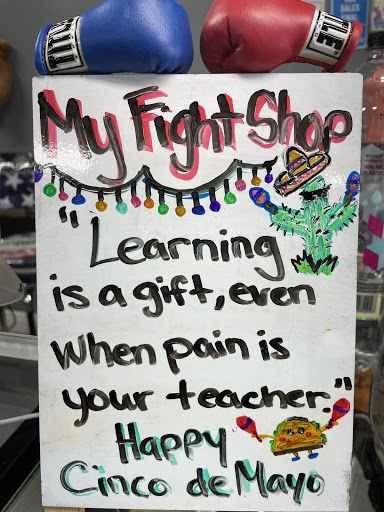 My Fight Shop
"Learning
is a gift, even
when pain is
your teacher."
Happy
Cinco de Mayo